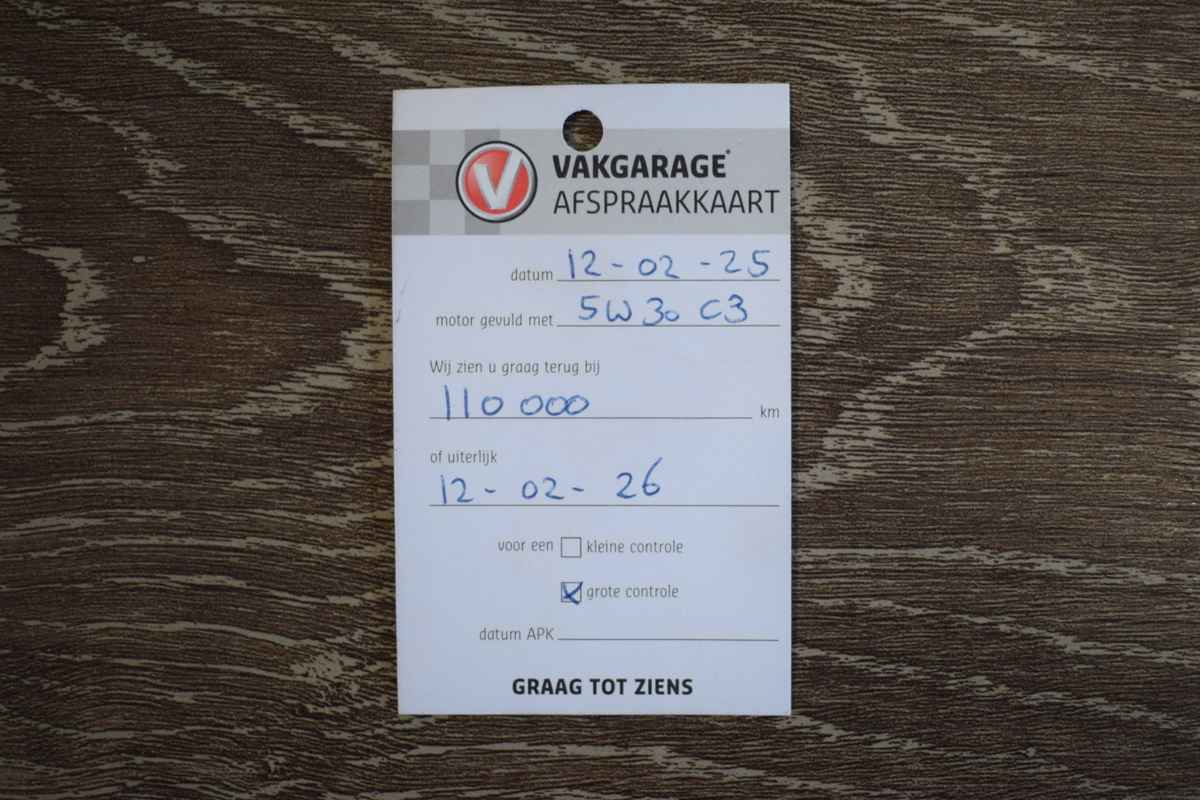 V VAKGARAGE®
AFSPRAAKKAART
datum 12-02-25
motor gevuld met 5W30 C3
Wij zien u graag terug bij
110 000 km
of uiterlijk
12-02-26
voor een kleine controle
grote controle
datum APK
GRAAG TOT ZIENS